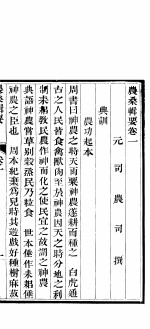 農桑輯要卷一
元司農司撰
典訓
農功起本
周書曰神農之時天雨粟神農遂耕而種之 白虎通
古之人民皆食禽獸肉至於神農因天之時分地之利
制耒耜教民農作神而化之使民宜之故謂之神農
典語神農嘗草别穀烝民乃粒食 世本倕作耒耜倕
神農之臣也 周本紀棄爲兒時其遊戲好種樹麻菽